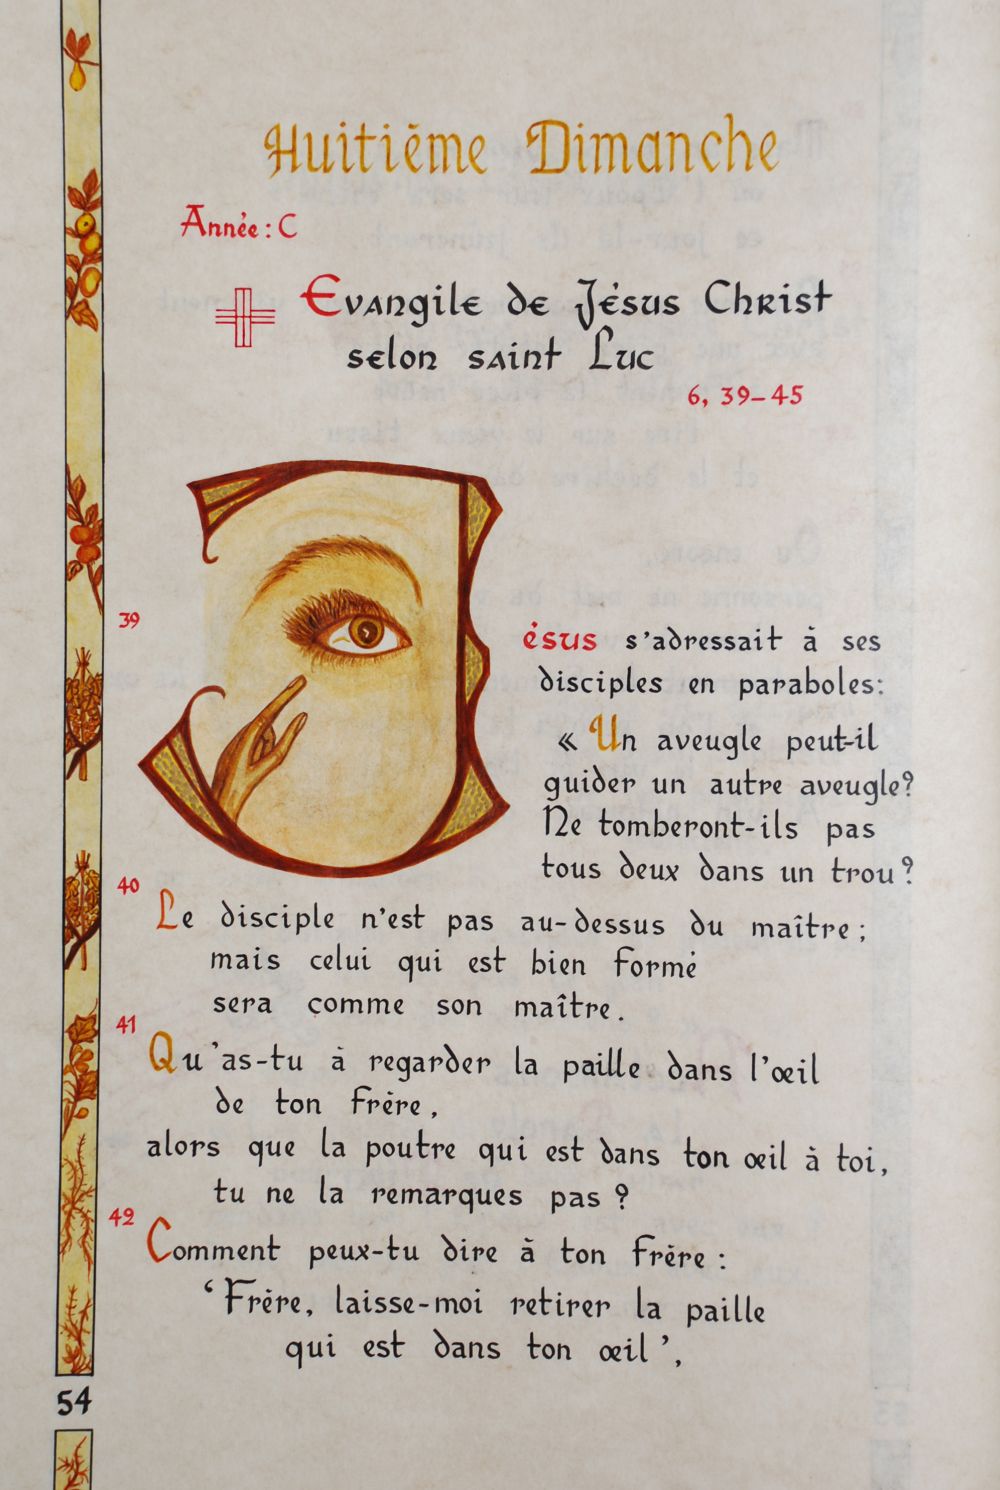 Huitième Dimanche
Année : C
Evangile de Jésus Christ
selon saint Luc
6, 39-45
39
Jésus s'adressait à ses
disciples en paraboles:
« Un aveugle peut-il
guider un autre aveugle?
Ne tomberont-ils pas
tous deux dans un trou?
40
Le disciple n'est pas au-dessus du maître;
mais celui qui est bien formé
sera comme son maître.
41
Qu'as-tu à regarder la paille dans l'œil
de ton frère,
alors que la poutre qui est dans ton œil à toi,
tu ne la remarques pas ?
42
Comment peux-tu dire à ton frère :
‘Frère, laisse-moi retirer la paille
qui est dans ton œil’,
54